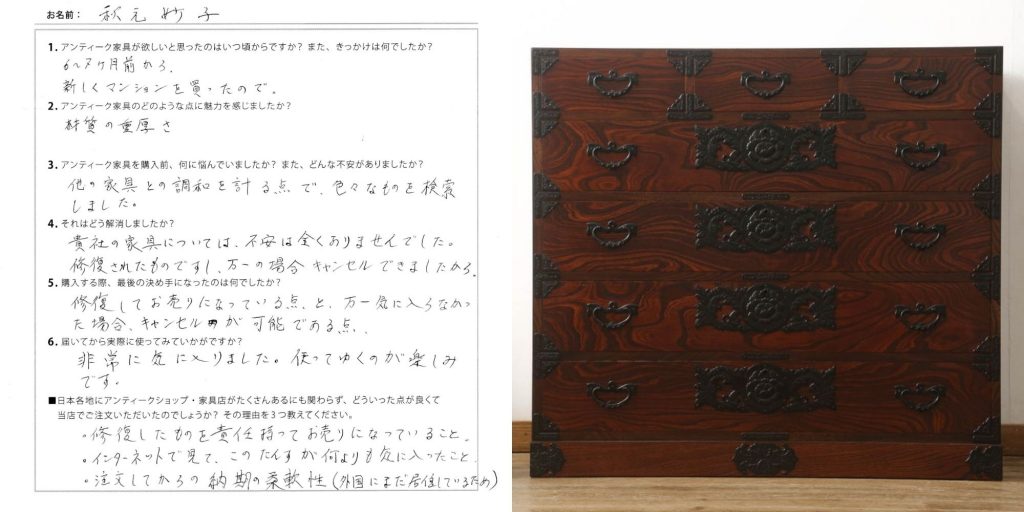 お名前： 秋元 妙子
1. アンティーク家具が欲しいと思ったのはいつ頃からですか？ また、きっかけは何でしたか？
6〜7ヶ月前から.
新しくマンションを買ったので。
2. アンティーク家具のどのような点に魅力を感じましたか？
材質の重厚さ
3. アンティーク家具を購入前、何に悩んでいましたか？ また、どんな不安がありましたか？
他の家具との調和を計る点で、色々なものを検索
しました。
4. それはどう解消しましたか？
貴社の家具については、不安は全くありませんでした。
修復されたものですし、万一の場合キャンセルできましたから.
5. 購入する際、最後の決め手になったのは何でしたか？
修復してお売りになっている点と、万一気に入らなかっ
た場合、キャンセルが可能である点.
6. 届いてから実際に使ってみていかがですか？
非常に気に入りました。使ってゆくのが楽しみ
です。
■日本各地にアンティークショップ・家具店がたくさんあるにも関わらず、どういった点が良くて
当店でご注文いただいたのでしょうか？ その理由を３つ教えてください。
。修復したものを責任持ってお売りになっていること.
。インターネットで見て、このたんすが何よりも気に入ったこと.
。注文してからの納期の柔軟性(外国にまだ居住しているため)